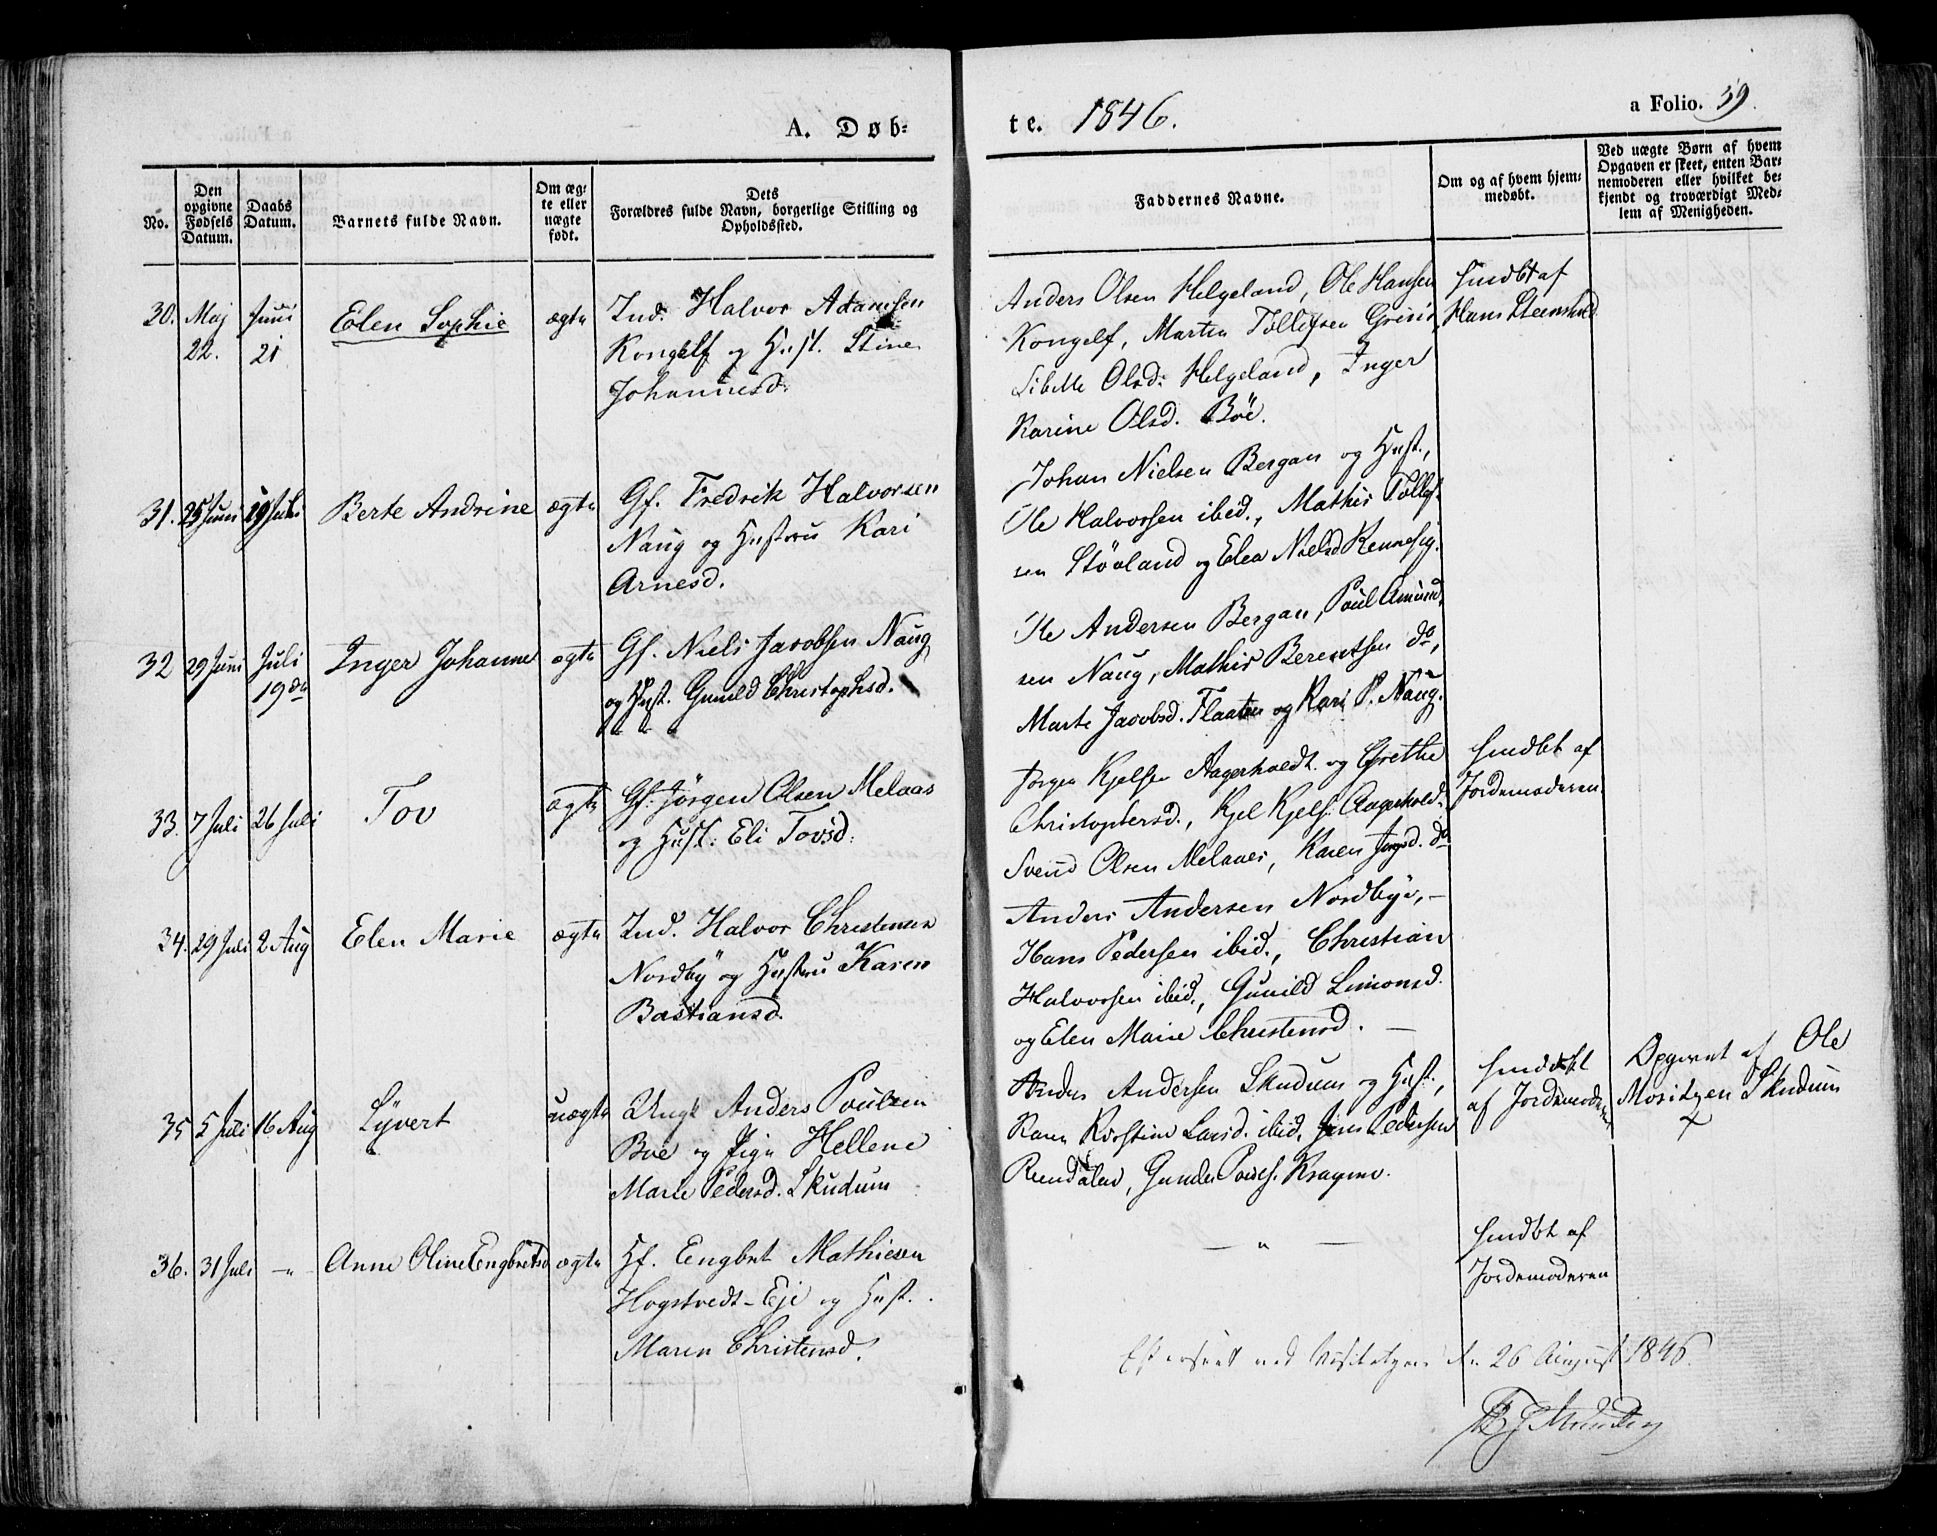 A. Døb-
te. 1846.
a Folio. 59.
No.
Den opgivne Fødsels Datum.
Daabs Datum.
Barnets fulde Navn.
Om ægte eller uægte født.
Dets Forældres fulde Navn, borgerlige Stilling og Opholdssted.
Faddernes Navne.
Om og af hvem hjemmedøbt.
Ved uægte Børn af hvem Opgaven er skeet, enten Barnemoderen eller hvilket bekjendt og troværdigt Medlem af Menigheden.
30. Maj 22. Juni 21 Elen Sophie ægte
Ind. Halvor Adamsen
Kongelf og Hust. Stine
Johannesd:
Anders Olsen Helgeland, Ole Hansen
Kongelf, Marten Tollefsen
Sibille Olsd: Helgeland, Inger
Karine Olsd. Böe.
hmdbt af
Hans Steenshold
31. 25 Juni 19 Juli Berte Andrine ægte
Gf. Fredrik Halvorsen
Naug og Hustru Kari
Arnesd.
Johan Nielsen Bergan og Hust.,
Ole Halvorsen ibid., Mathis Tollef-
sen Stövland og Elen Nielsd
32 29 Juni Juli 19de Inger Johanne ægte
Gf. Niels Jacobsen Naug
og Hust. Gunild Christophsd.
Ole Andersen Bergan, Poul Amund-
sen Naug, Mathis Berentsen do,
Marte Jacobsd. Flaaten og Kari P. Naug.
33. 7 Juli 26 Juli Tov ægte
Gf. Jörgen Olsen Melaas
og Hust: Eli Tovsd:
Jörgen Kjelsen Aagerholdt og Grethe
Christophersd., Kjel Kjels. Aagerhold.
Svend Olsen Melaaes, Karen Jörgd. do
hmdbt af
Jordemoderen.
34. 29 Juli 2 Aug Elen Marie ægte
Ind. Halvor Christensen
Nordby og Hustru Karen
Bastiansd.
Anders Andersen Nordbye, –
Hans Pedersen ibid., Christian
Halvorsen ibid., Gunild Simonsd.
og Elen Marie Christensd. –
35 5 Juli 16 Aug Lyvert uægte
Ungk Anders Poulsen
Boe og Pige Hellene
Marie Pedersd. Skudum
Anders Andersen Skudum og Hust.,
Karen Kirstine Larsd. ibid, Jens Pedersen
Gunder Pouls. Kragerø.
hmddbt
af Jordemoderen
Opgivet af Ole
Moritzen Skudum
+
36. 31 Juli – „ Anne Oline Engbretsd ægte
Hf. Engbret Mathiesen
Hogstvedt-Eje og Hust.
Maren Christensd.
– „ –
hmdbt af
Jordemoderen
Efterseet ved Visitatzen d. 26 August 1846.